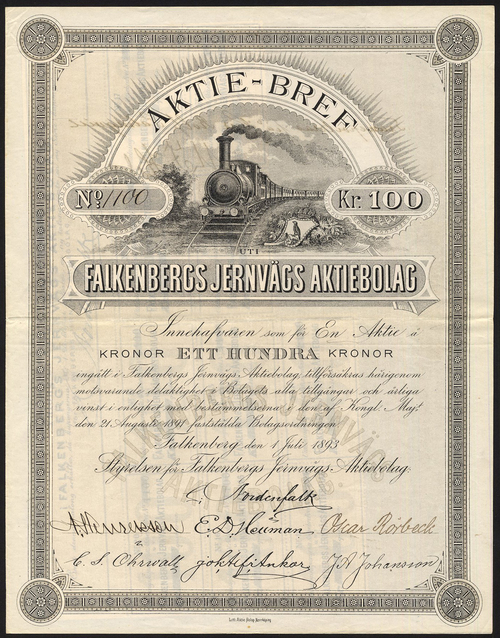 AKTIE-BREF
No 1100
Kr. 100
UTI
FALKENBERGS JERNVÄGS AKTIEBOLAG
Innehafvaren som för En Aktie å
KRONOR ETT HUNDRA KRONOR
ingått i Falkenbergs Jernvägs Aktiebolag, tillförsäkras härigenom
motsvarande delaktighet i Bolagets alla tillgångar och årliga
vinst i enlighet med bestämmelserna i den af Kongl. Maj:t
den 21 Augusti 1891 fastställda Bolagsordningen.
Falkenberg den 1 Juli 1893.
Styrelsen för Falkenbergs Jernvägs-Aktiebolag:
C. Nordenfalk
E. D. Heüman Oscar Rörbeck
C. S. Öhrwall J A Johansson